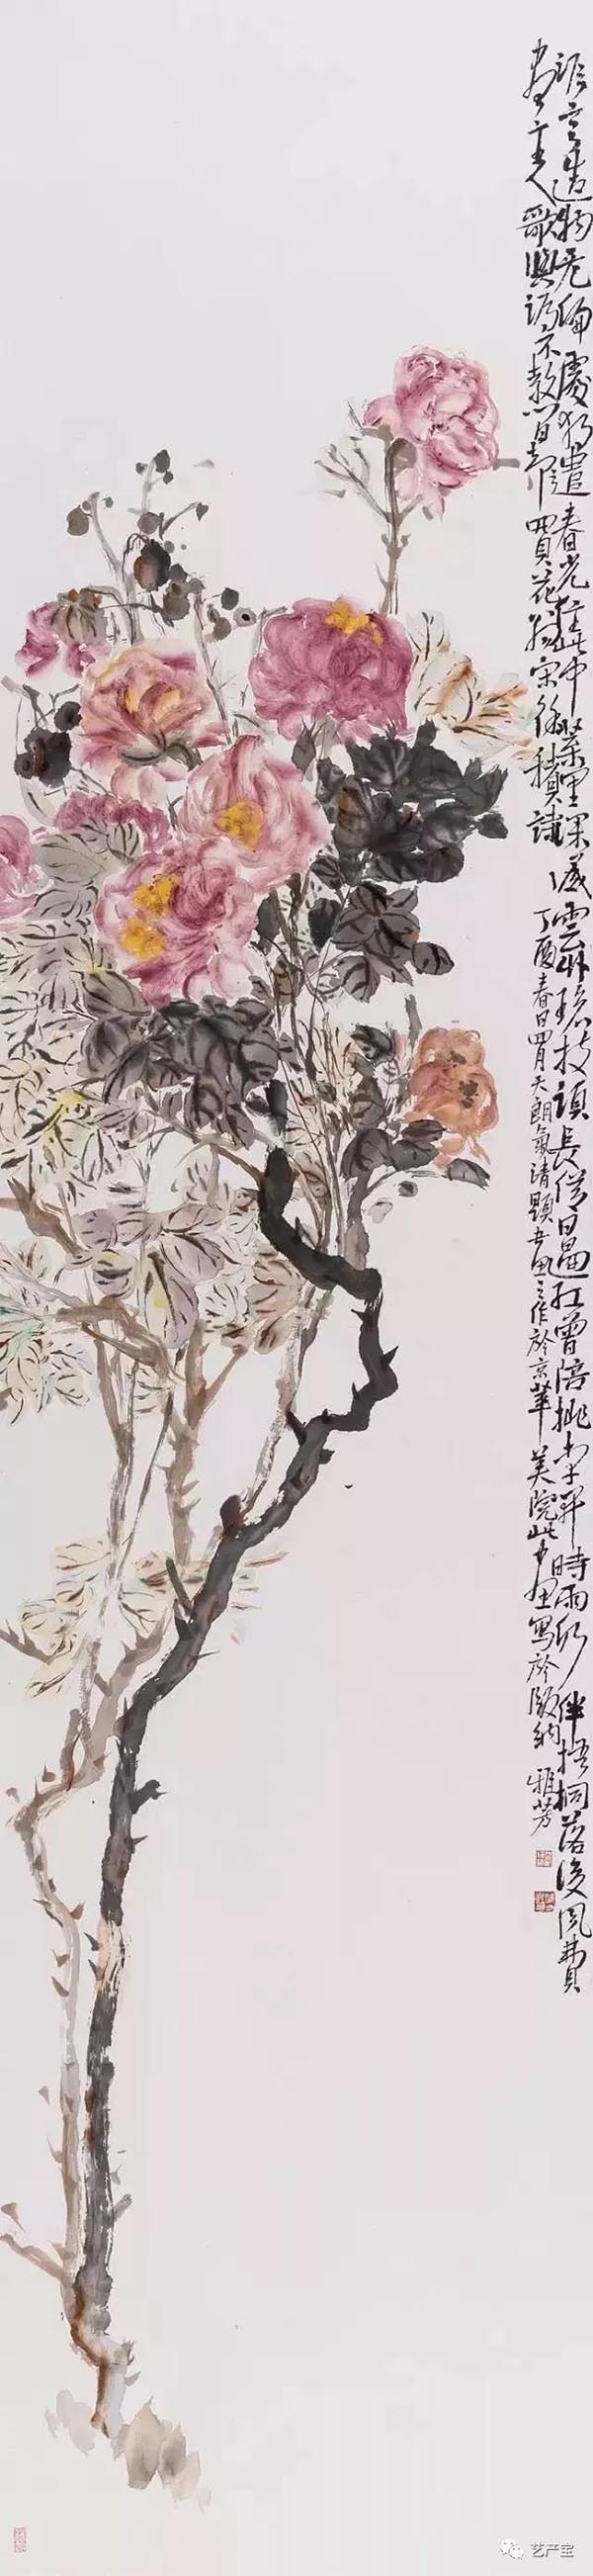 谁言造物无偏处独遣春光住此中叶里深藏云外碧枝头长借日边红曾陪桃李开时雨仍伴梧桐落后风费
尽主人歌与酒不教闲却买花翁宋徐积诗 丁酉春日四月天朗气清题 之作于京华美院此 画写于 纳雅芳
艺产宝